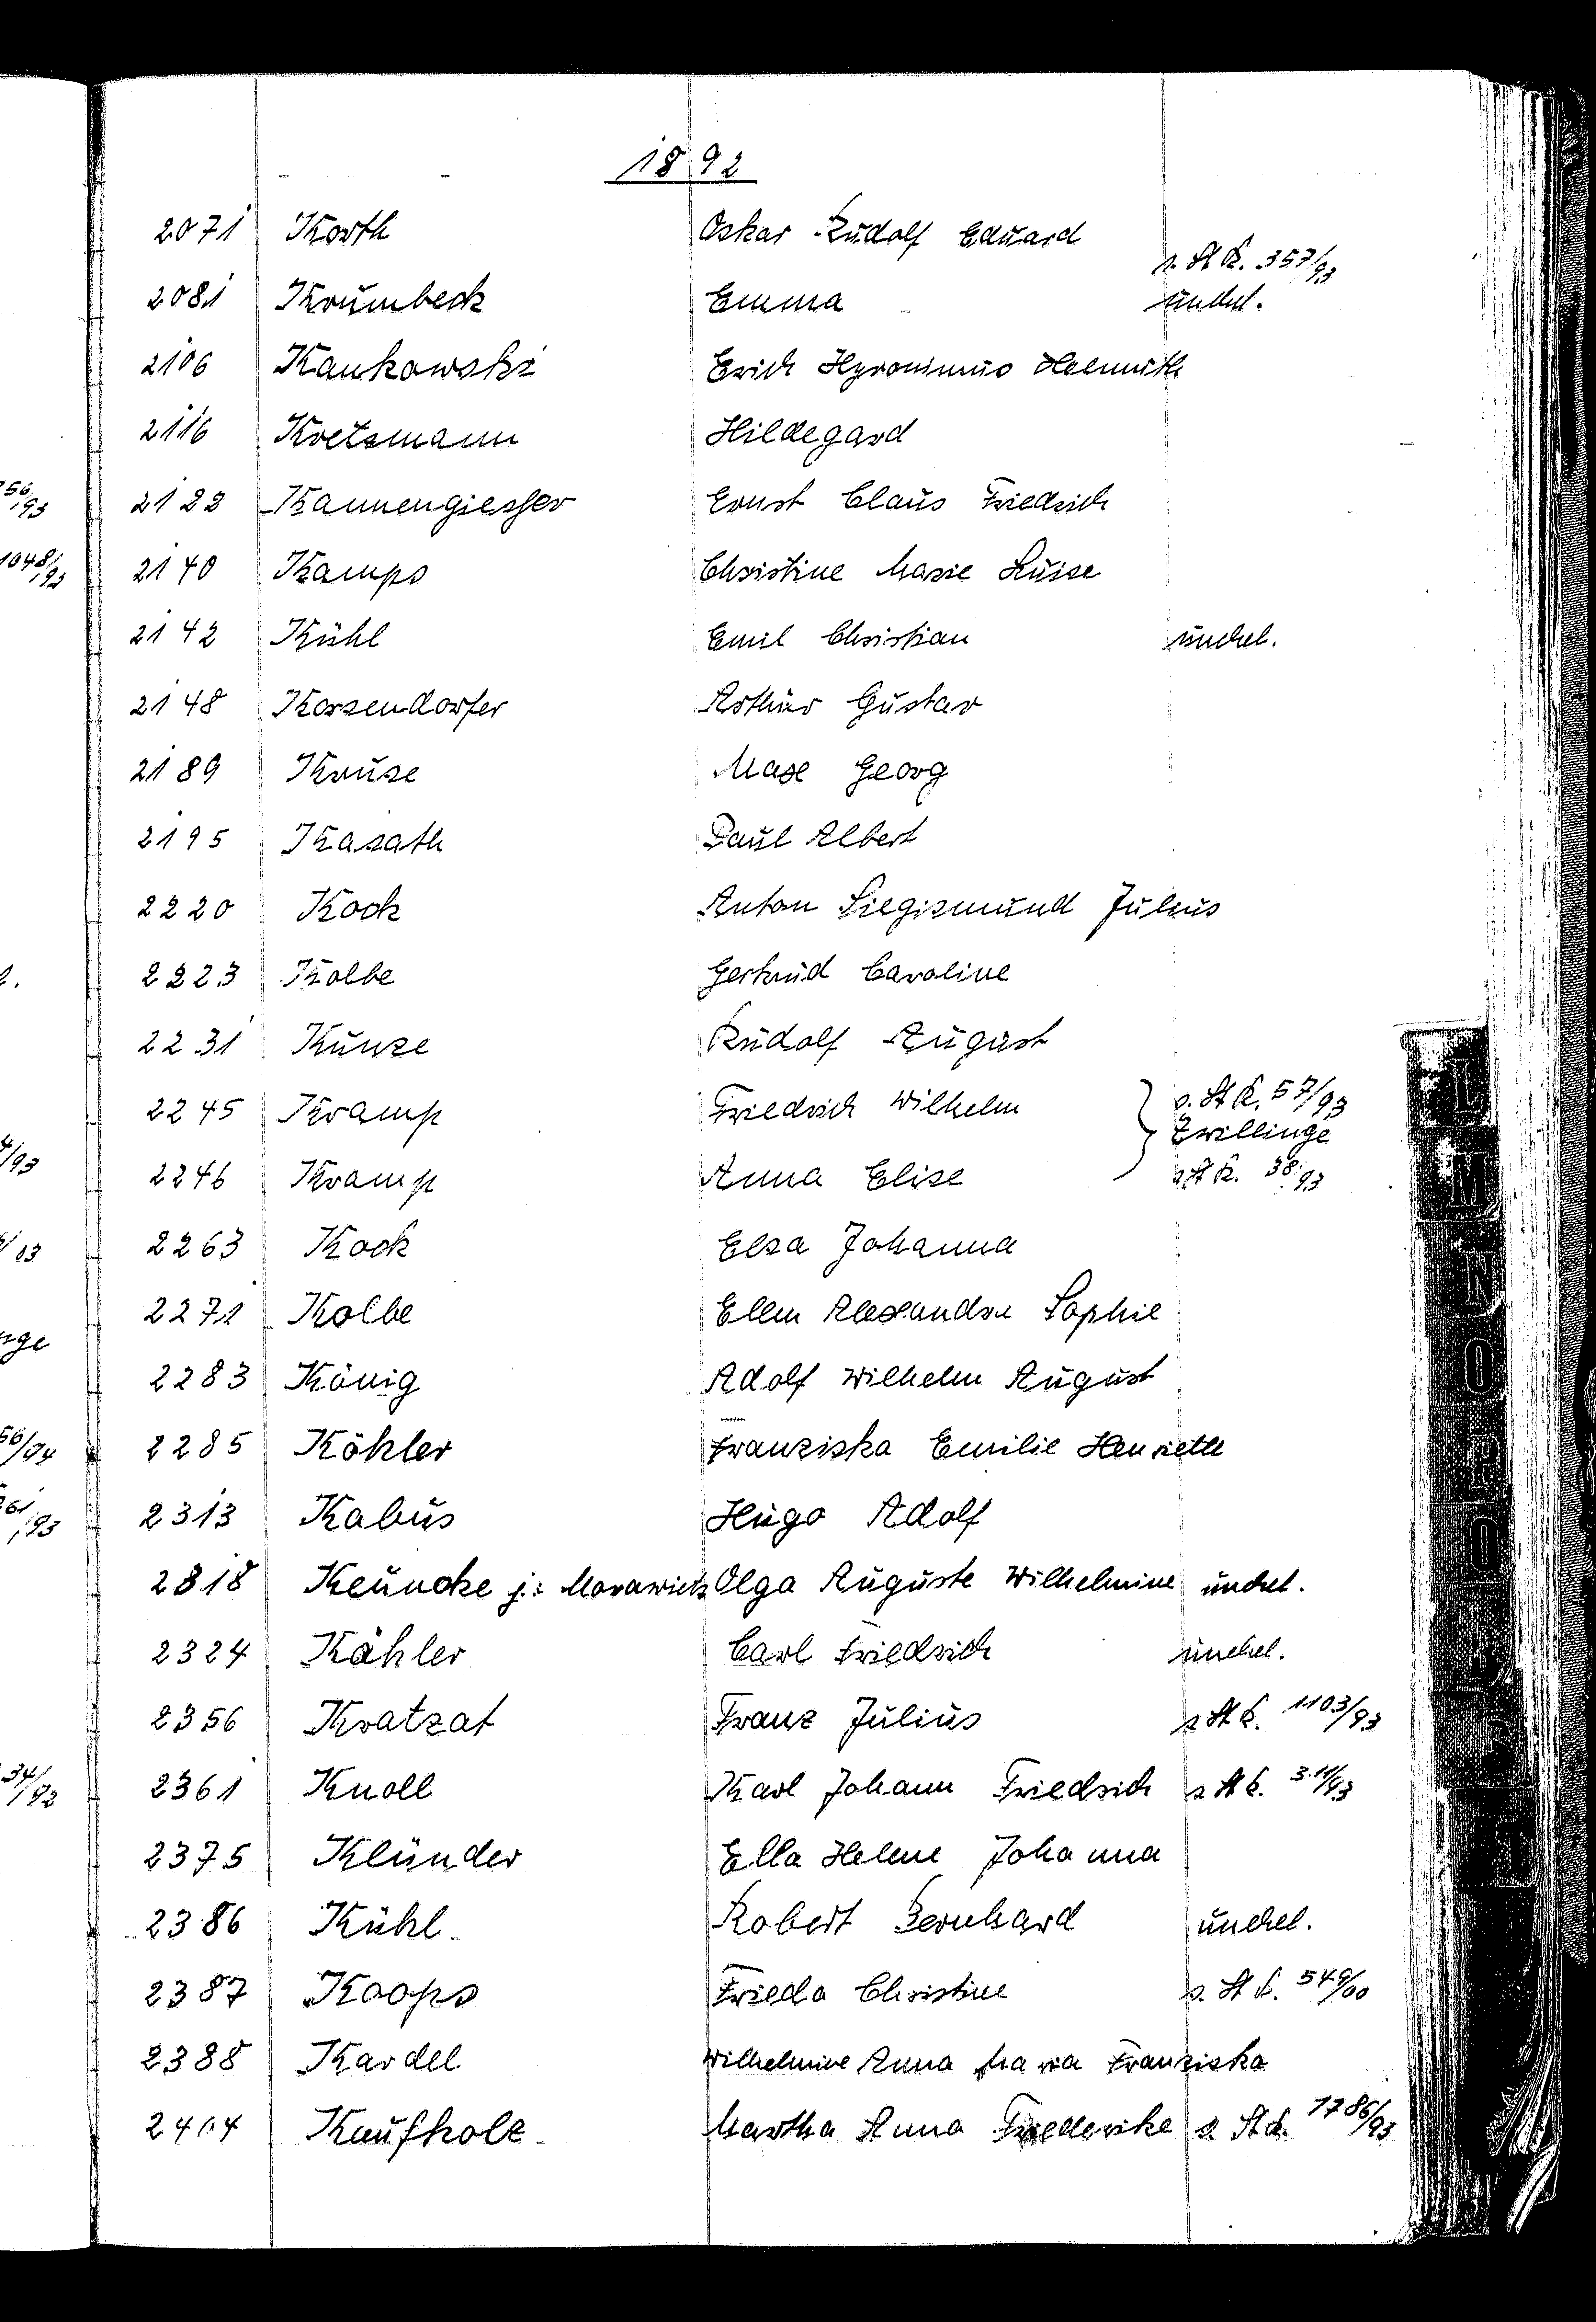 1892
2071 Korth Oskar Rudolf Eduard
s. St R. 357/93
2081 Krumbeck Emma unehel.
2106 Kankowski Erich Hyronimus Helmuth
2116 Kretzmann Hildegard
2122 Kannengiesser Ernst Claus Friedrich
2140 Kamps Christine Marie Luise
2142 Kühl Emil Christian unehel.
2148 Karsendorfer Arthur Gustav
2189 Kruse Max Georg
2195 Kasath Paul Albert
2220 Kock Anton Siegismund Julius
2223 Kolbe Gertrud Caroline
2231 Kunze Rudolf August
2245 Kramp Friedrich Wilhelm s. St R. 57/93
Zwillinge
2246 Kramp Anna Elise s St R. 38/93
2263 Kock Elsa Johanna
2271 Kolbe Ellen Alexandra Sophie
2283 König Adolf Wilhelm August
2285 Köhler Franziska Emilie Henriette
2313 Kabus Hugo Adolf
2318 Keuncke j: Marawietz Olga Auguste Wilhelmine unehel.
2324 Kähler Carl Friedrich unehel.
2356 Kratzat Franz Julius s St R. 1103/93
2361 Knoll Karl Johann Friedrich s St R. 311/93
2375 Klünder Ella Helene Johanna
2386 Kühl Robert Bernhard unehel.
2387 Koops Frieda Christine s. St R. 549/00
2388 Kardel Wilhelmine Anna Maria Franziska
2404 Kaufholz Martha Anna Friederike s. St R. 1786/93
L
M
N
O
P
Q
T